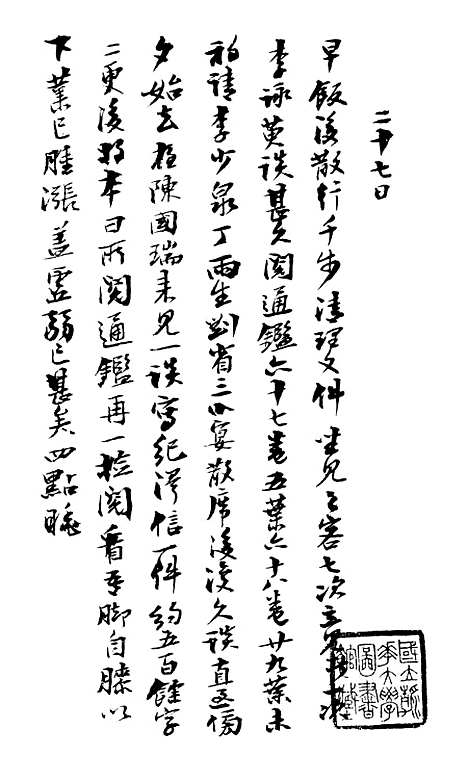 二十七日
早飯後散行千步清理文件坐見之客七次立見者一次
李詠黃談甚久閱通鑑六十七卷五葉六十八卷廿九葉未
初請李少泉丁雨生劉省三小宴散席後淡久談直至傍
夕始去拒陳國瑞來見一談寫紀澤信一件約五百餘字
二更後將本日所閱通鑑再一檢閱看吾腳自膝以
下業已腫漲蓋虛弱已甚矣四點睡
國立
大學
圖書